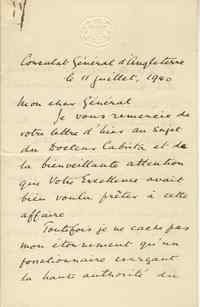 Consulat Général d'Angleterre
le 11 juillet, 1940
Mon cher Général
Je vous remercie de
votre lettre d'hier au sujet
du Docteur Cabrita et de
la bienveillante attention
que Votre Excellence avait
bien voulu prêter à cette
affaire
Toutefois je ne cache pas
mon étonnement qu'un
fonctionnaire exerçant
la haute autorité du